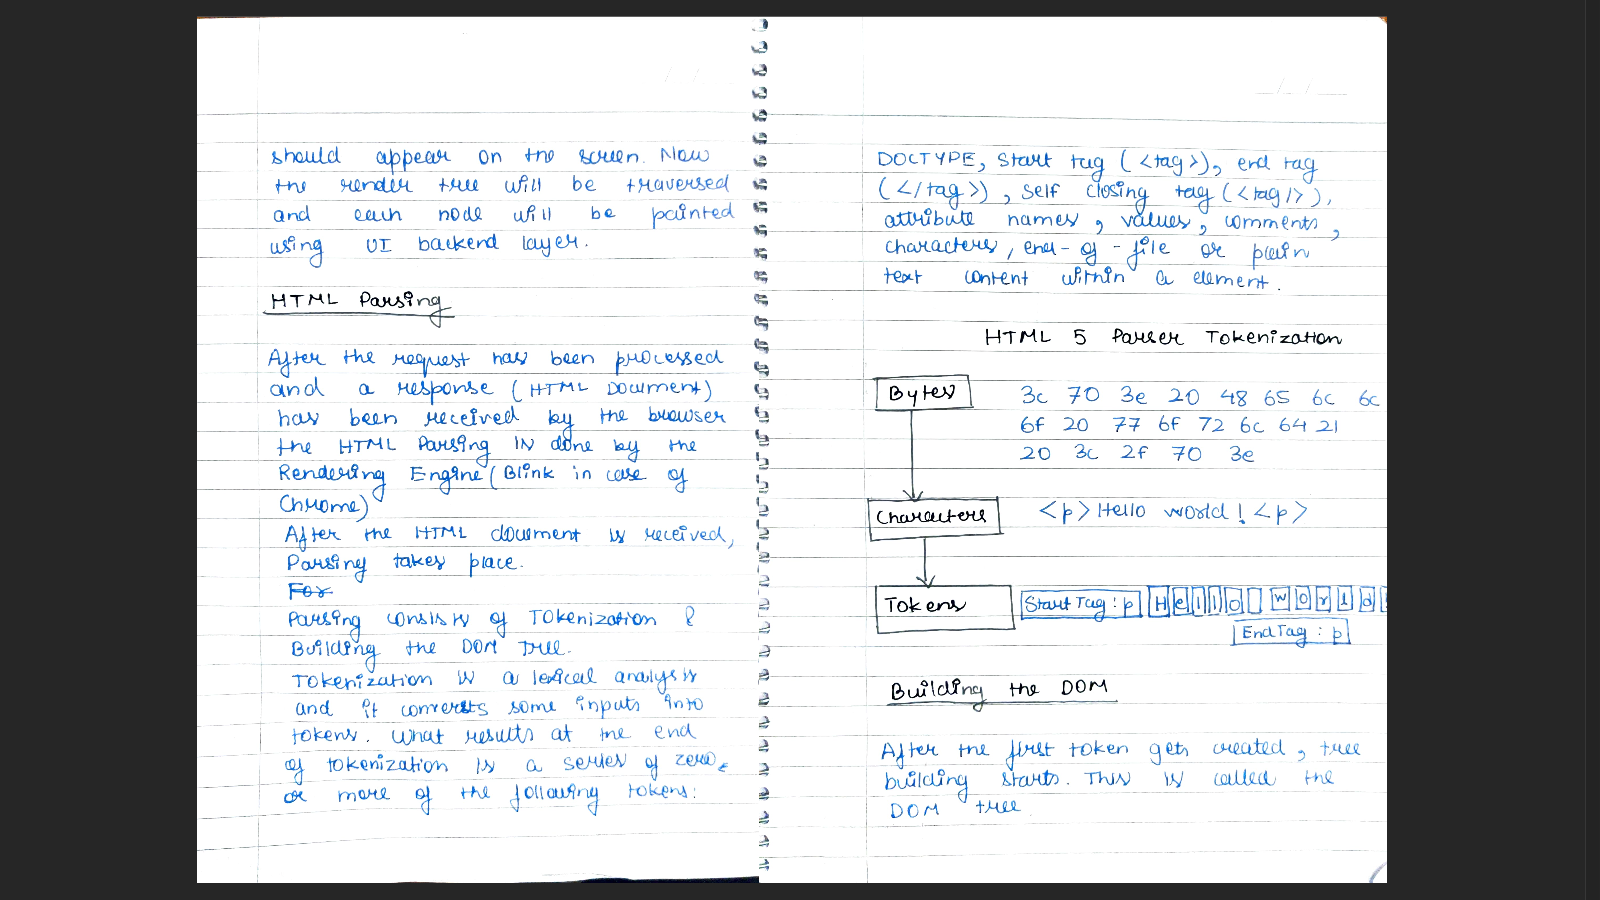 should appear on the screen. Now
the render tree will be traversed
and each node will be painted
using UI backend layer.
HTML Parsing
After the request has been processed
and a response (HTML Document)
has been received by the browser
the HTML Parsing is done by the
Rendering Engine (Blink in case of
Chrome)
After the HTML document is received,
Parsing takes place.
For
Parsing consists of Tokenization &
Building the DOM Tree.
Tokenization is a lexical analysis
and it converts some inputs into
tokens. What results at the end
of tokenization is a series of zero
or more of the following tokens:
DOCTYPE, start tag (<tag>), end tag
(</tag>), self closing tag (<tag/>),
attribute names, values, comments,
characters, end-of-file or plain
text content within a element.
HTML 5 Parser Tokenization
Bytes 3c 70 3e 20 48 65 6c 6c
6f 20 77 6f 72 6c 64 21
20 3c 2f 70 3e
Characters <p>Hello world!<p>
Tokens StartTag: p H e l l o w o r l d
EndTag: p
Building the DOM
After the first token gets created, tree
building starts. This is called the
DOM tree